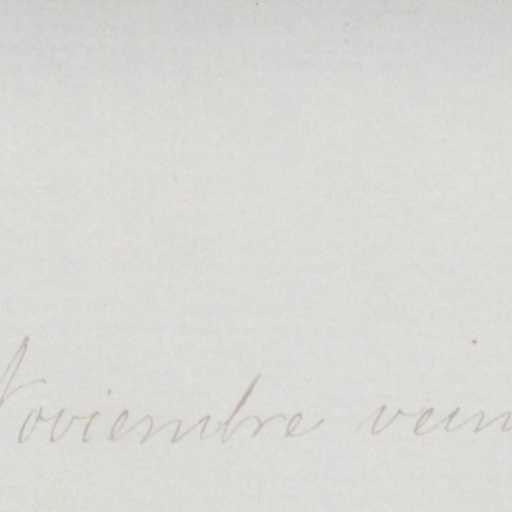 Noviembre vein